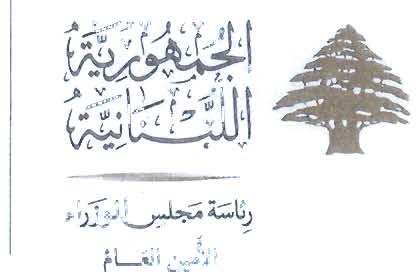 الجمهورية
اللبنانية
رئاسة مجلس الوزراء
الأمين العام